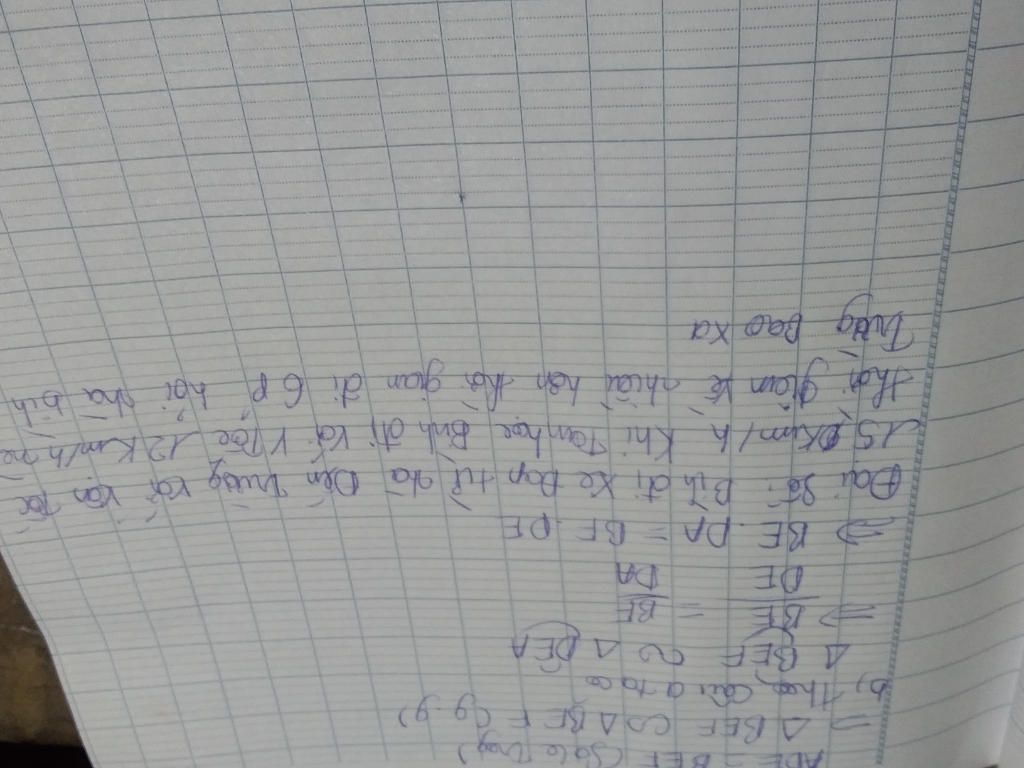 ADE = BEF (Sole trog)
=> △ BEF ∽ △ BEF (g.g)
b, theo câu a ta co
△ BEF ∽ △ DEA
=> BE/DE = BF/DA
=> BE . DA = BF . DE
Đại Số: Bìh đi xe Đạp từ nhà Đến trườg vối vận tốc
15 km/h Khi Tan học Bìh đi vối v Tốc 12 km/h nê
thời gian về nhiều hơn thời gian đi 6 p hỏi nhà bìh
Trườg Bao xa